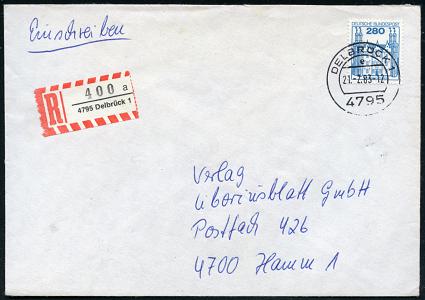 Einschreiben
DEUTSCHE BUNDESPOST
280
DELBRÜCK 1
e
21.-7.83-12
4795
R
400 a
4795 Delbrück 1
Verlag
GmbH
Postfach 426
4700 Hamm 1